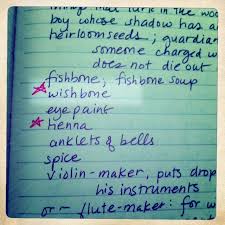 things that lurk in the woo
boy whose shadow has a
heirloom seeds; guardian
someone charged w
does not die out
fishbone; fishbone soup
wishbone
eye paint
henna
anklets & bells
spice
violin-maker, puts drop
his instruments
or – flute-maker: for w